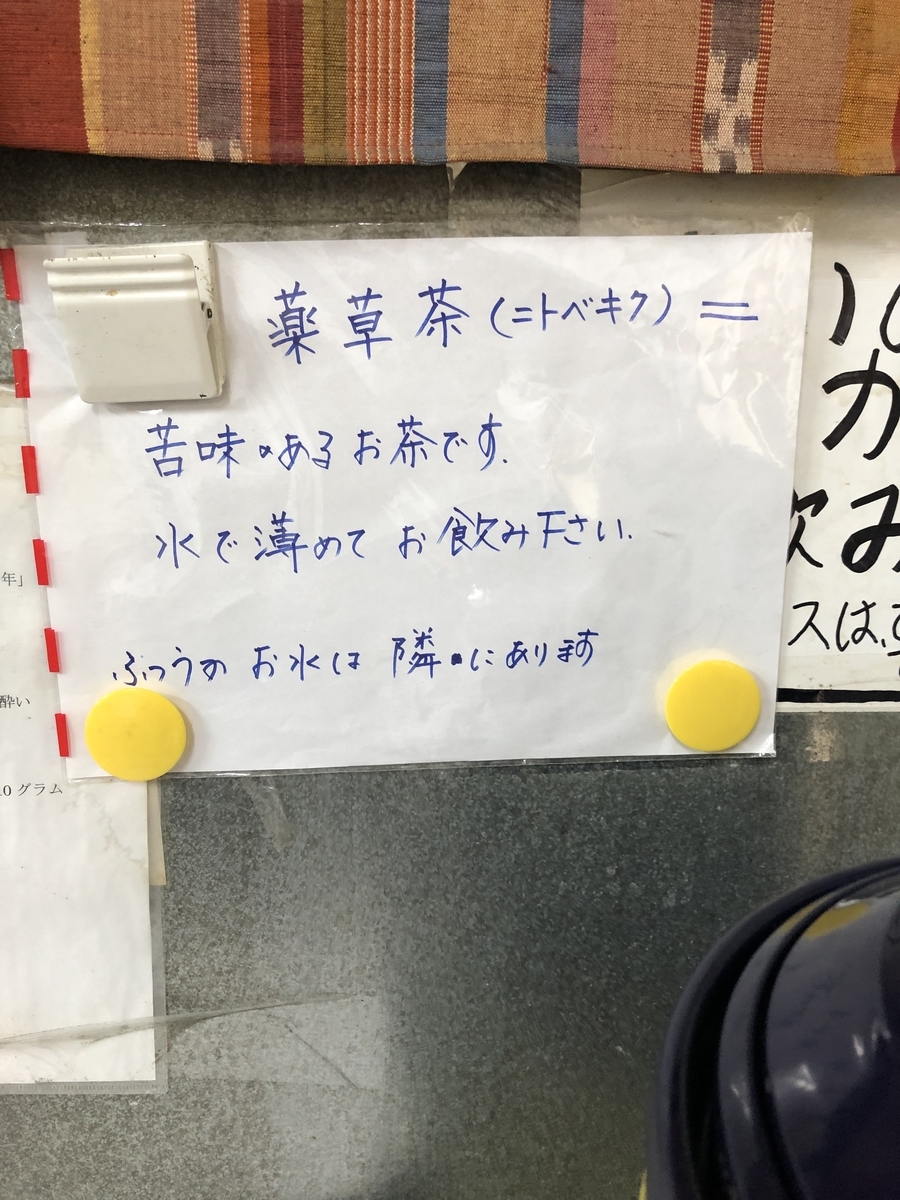 薬草茶(ニトベキク)=
苦味のあるお茶です.
水で薄めてお飲み下さい.
ふつうのお水は隣にあります
年」
酔い
10グラム
か
飲み
スは